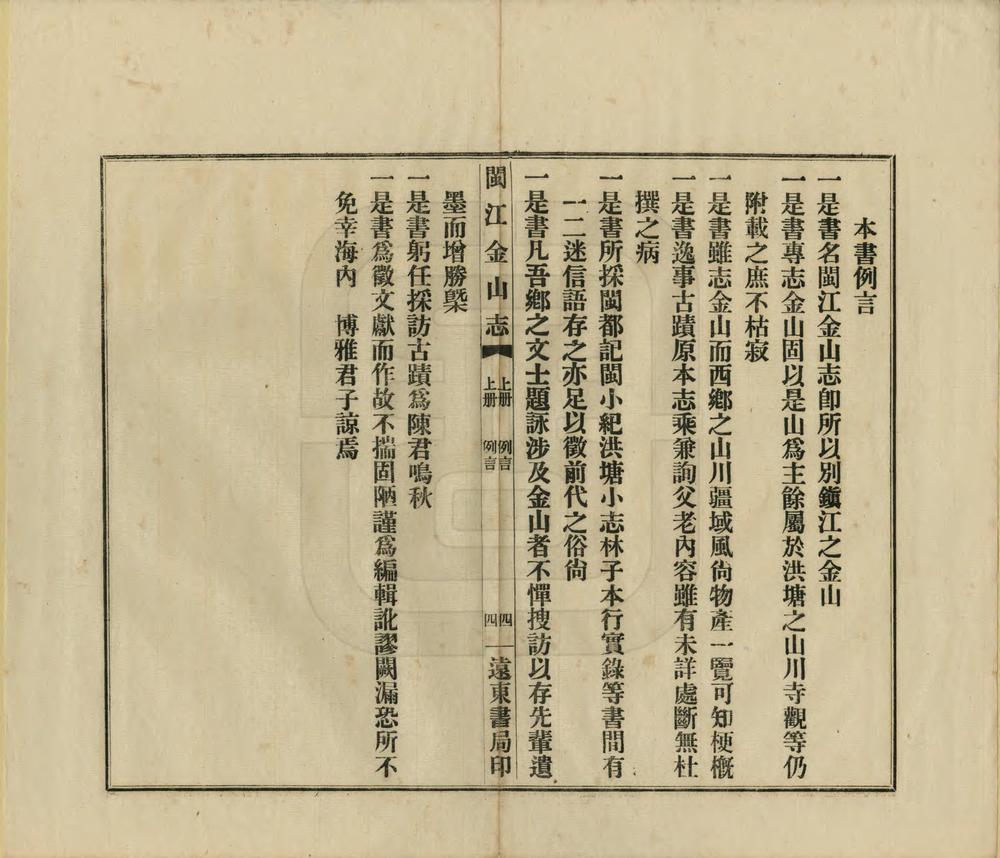 本書例言
一是書名閩江金山志卽所以別鎭江之金山
一是書專志金山固以是山爲主餘屬於洪塘之山川寺觀等仍
附載之庶不枯寂
一是書雖志金山而西鄕之山川疆域風尙物產一覽可知梗槪
一是書逸事古蹟原本志乘兼詢父老內容雖有未詳處斷無杜
撰之病
一是書所採閩都記閩小紀洪塘小志林子本行實錄等書間有
一二迷信語存之亦足以徵前代之俗尙
一是書凡吾鄕之文士題詠涉及金山者不憚搜訪以存先輩遺
閩江金山志 上册 例言 四 遠東書局印
上册 例言 四
墨而增勝槩
一是書躬任採訪古蹟爲陳君鳴秋
一是書爲徵文獻而作故不揣固陋謹爲編輯訛謬闕漏恐所不
免幸海內 博雅君子諒焉